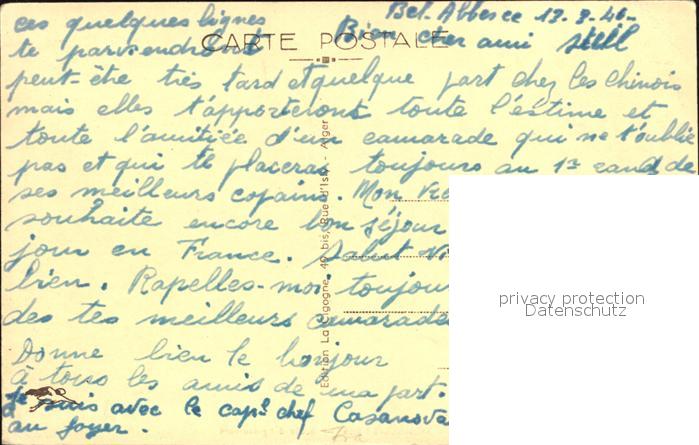 Bel. Abbes ce 12-8-46-
CARTE POSTALE
Bien cher ami
ces quelques lignes
te parviendront
peut-être très tard et quelque part chez les chinois
mais elles t'apporteront toute l'estime et
toute l'amitiée d'un camarade qui ne t'oublie
pas et qui te placeras toujours au 1er rand de
ses meilleurs copains. Mon
souhaite encore bon séjour
jour en France. Salut
bien. Rapelles-moi toujours
des tes meilleurs camarades
Donne bien le bonjour
à tous les amis de ma part.
Je suis avec le cap.l chef Casanova
au foyer.
Edition La Cigogne, 40 bis, Rue d'Isly - Alger
privacy protection
Datenschutz